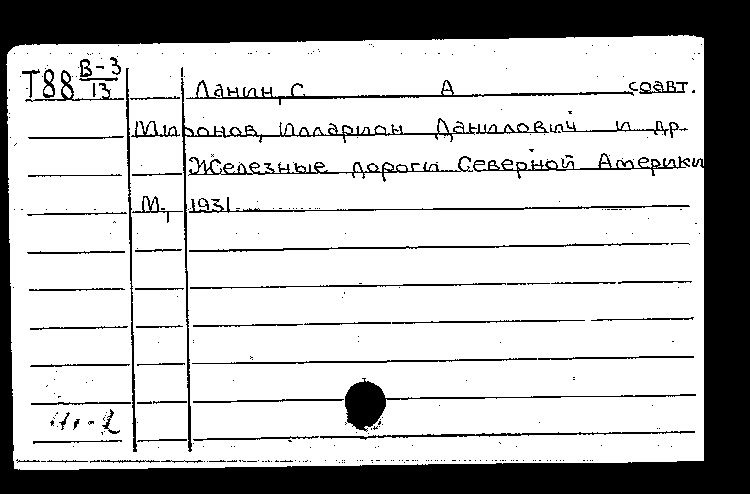 Т88 В-3/13 Ланин, С. А соавт.
Миронов, Илларион Данилович и др.
Железные дороги Северной Америки
М., 1931